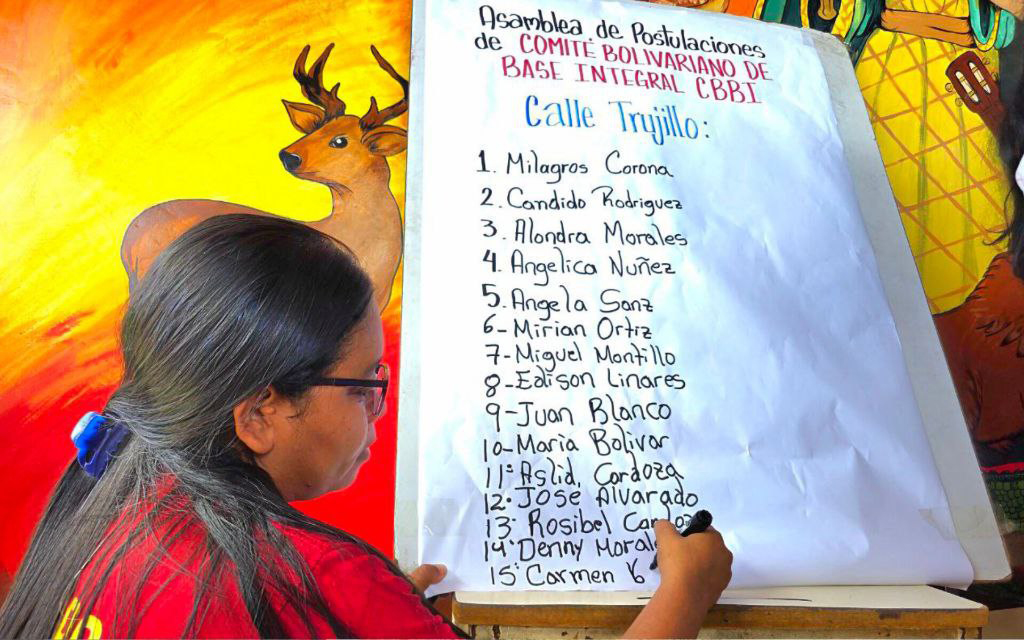 Asamblea de Postulaciones
de COMITÉ BOLIVARIANO DE
BASE INTEGRAL CBBI
Calle Trujillo:
1. Milagros Corona
2. Candido Rodriguez
3. Alondra Morales
4. Angelica Nuñez
5. Angela Sanz
6- Mirian Ortiz
7- Miguel Montillo
8- Edison Linares
9- Juan Blanco
10- Maria Bolivar
11° Aslid, Cardoza
12° JOSE Alvarado
13° Rosibel
14° Denny
15° Carmen